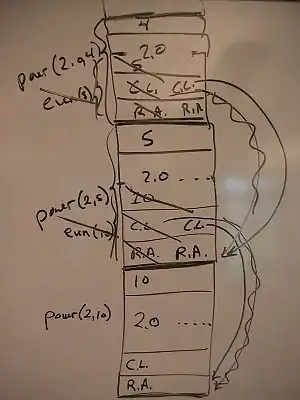 4
2.0
power(2,4)
5
C.L. C.L.
even(5)
R.A. R.A
5
2.0 ....
10
power(2,5)
C.L. C.L.
even(10)
R.A. R.A.
10
2.0 .....
power(2,10)
C.L.
R.A.